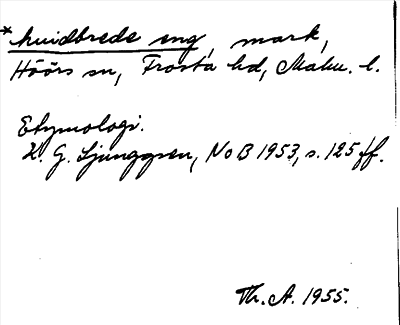 *hvidbrede eng, mark,
Höörs sn, Frosta hd, Malm. l.
Etymologi.
K. G. Ljunggren, NoB 1953, s. 125 ff.
Th. A. 1955.